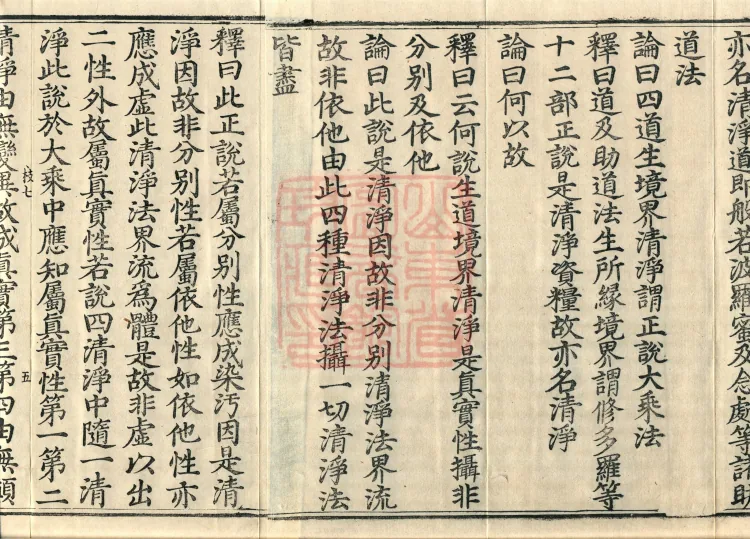 亦名清淨道即般若波羅蜜及念處等諸助
道法
論曰四道生境界清淨謂正說大乘法
釋曰道及助道法生所緣境界謂修多羅等
十二部正說是清淨資糧故亦名清淨
論曰何以故
釋曰云何說生道境界清淨是真實性攝非
分別及依他
論曰此說是清淨因故非分別清淨法界流
故非依他由此四種清淨法攝一切清淨法
皆盡
釋曰此正說若屬分別性應成染汚因是清
淨因故非分別性若屬依他性如依他性亦
應成虛此清淨法界流爲體是故非虛以出
二性外故屬眞實性若說四清淨中隨一清
淨此說於大乘中應知屬眞實性第一第二
清淨由無變異故成真實第三第四由無顚